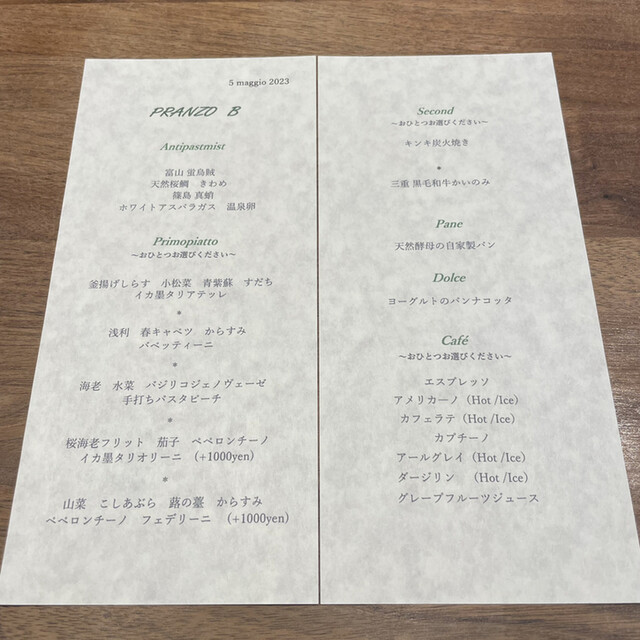 5 maggio 2023
PRANZO B
Antipastmist
富山 蛍烏賊
天然桜鯛 きわめ
篠島 真蛸
ホワイトアスパラガス 温泉卵
Primopiatto
～おひとつお選びください～
釜揚げしらす 小松菜 青紫蘇 すだち
イカ墨タリアテッレ
*
浅利 春キャベツ からすみ
バベッティーニ
*
海老 水菜 バジリコジェノヴェーゼ
手打ちパスタピーチ
*
桜海老フリット 茄子 ペペロンチーノ
イカ墨タリオリーニ (+1000yen)
*
山菜 こしあぶら 蕗の薹 からすみ
ペペロンチーノ フェデリーニ (+1000yen)
Second
～おひとつお選びください～
キンキ炭火焼き
*
三重 黒毛和牛かいのみ
Pane
天然酵母の自家製パン
Dolce
ヨーグルトのパンナコッタ
Café
～おひとつお選びください～
エスプレッソ
アメリカーノ (Hot /Ice)
カフェラテ (Hot /Ice)
カプチーノ
アールグレイ (Hot /Ice)
ダージリン (Hot /Ice)
グレープフルーツジュース